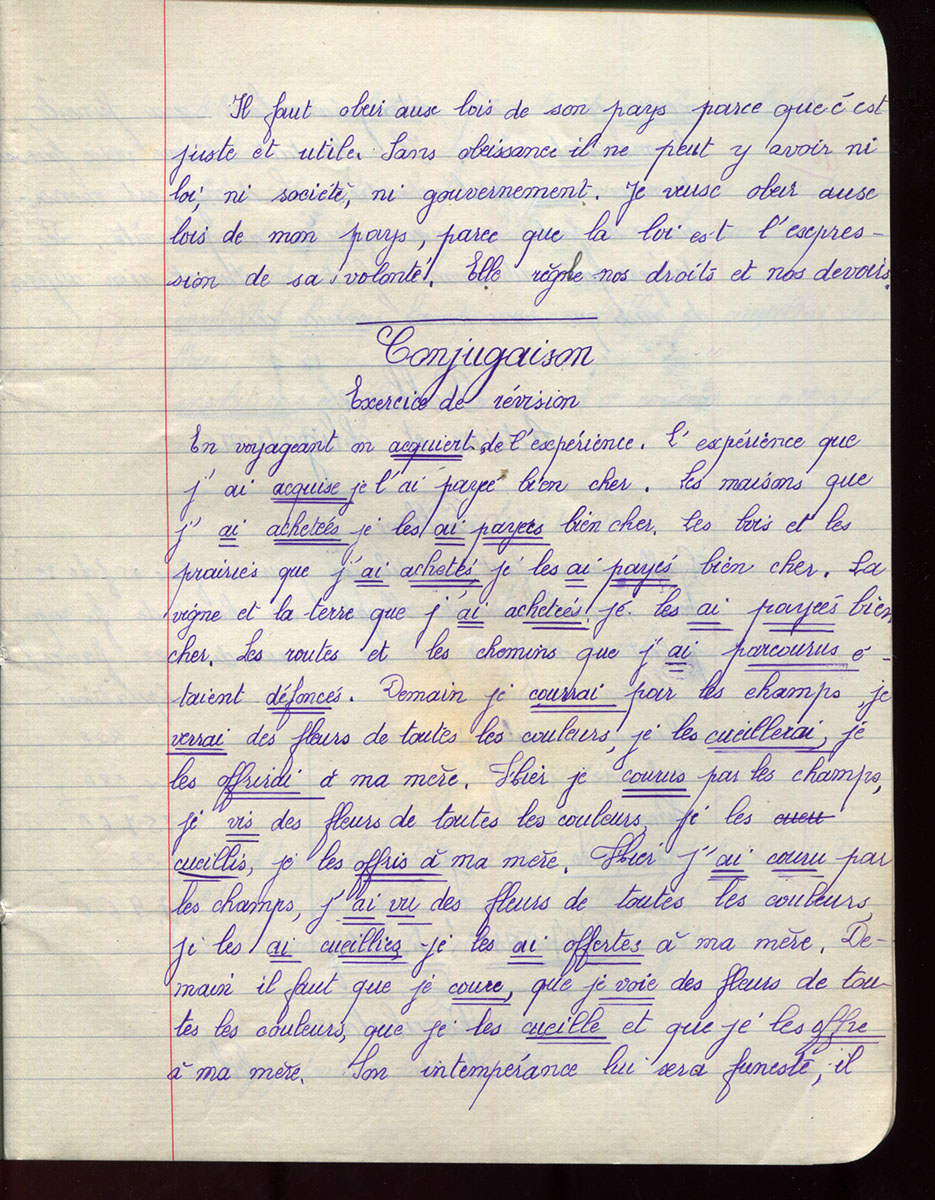 Il faut obéir aux lois de son pays parce que c'est
juste et utile. Sans obéissance il ne peut y avoir ni
loi, ni société, ni gouvernement. Je veux obéir aux
lois de mon pays, parce que la loi est l'expres-
sion de sa volonté. Elle règle nos droits et nos devoirs.
Conjugaison
Exercice de révision
En voyageant on acquiert de l'expérience. L'expérience que
j'ai acquise je l'ai payé bien cher. Les maisons que
j'ai achetées je les ai payées bien cher. Les bois et les
prairies que j'ai achetés je les ai payés bien cher. La
vigne et la terre que j'ai achetées je les ai payées bien
cher. Les routes et les chemins que j'ai parcourus é-
taient défoncés. Demain je courrai par les champs, je
verrai des fleurs de toutes les couleurs, je les cueillerai, je
les offrirai à ma mère. Hier je courus par les champs,
je vis des fleurs de toutes les couleurs, je les cueu
cueillis, je les offris à ma mère. Hier j'ai couru par
les champs, j'ai vu des fleurs de toutes les couleurs,
je les ai cueillies je les ai offertes à ma mère. De-
main il faut que je coure, que je voie des fleurs de tou-
tes les couleurs, que je les cueille et que je les offre
à ma mère. Son intempérance lui sera funeste, il